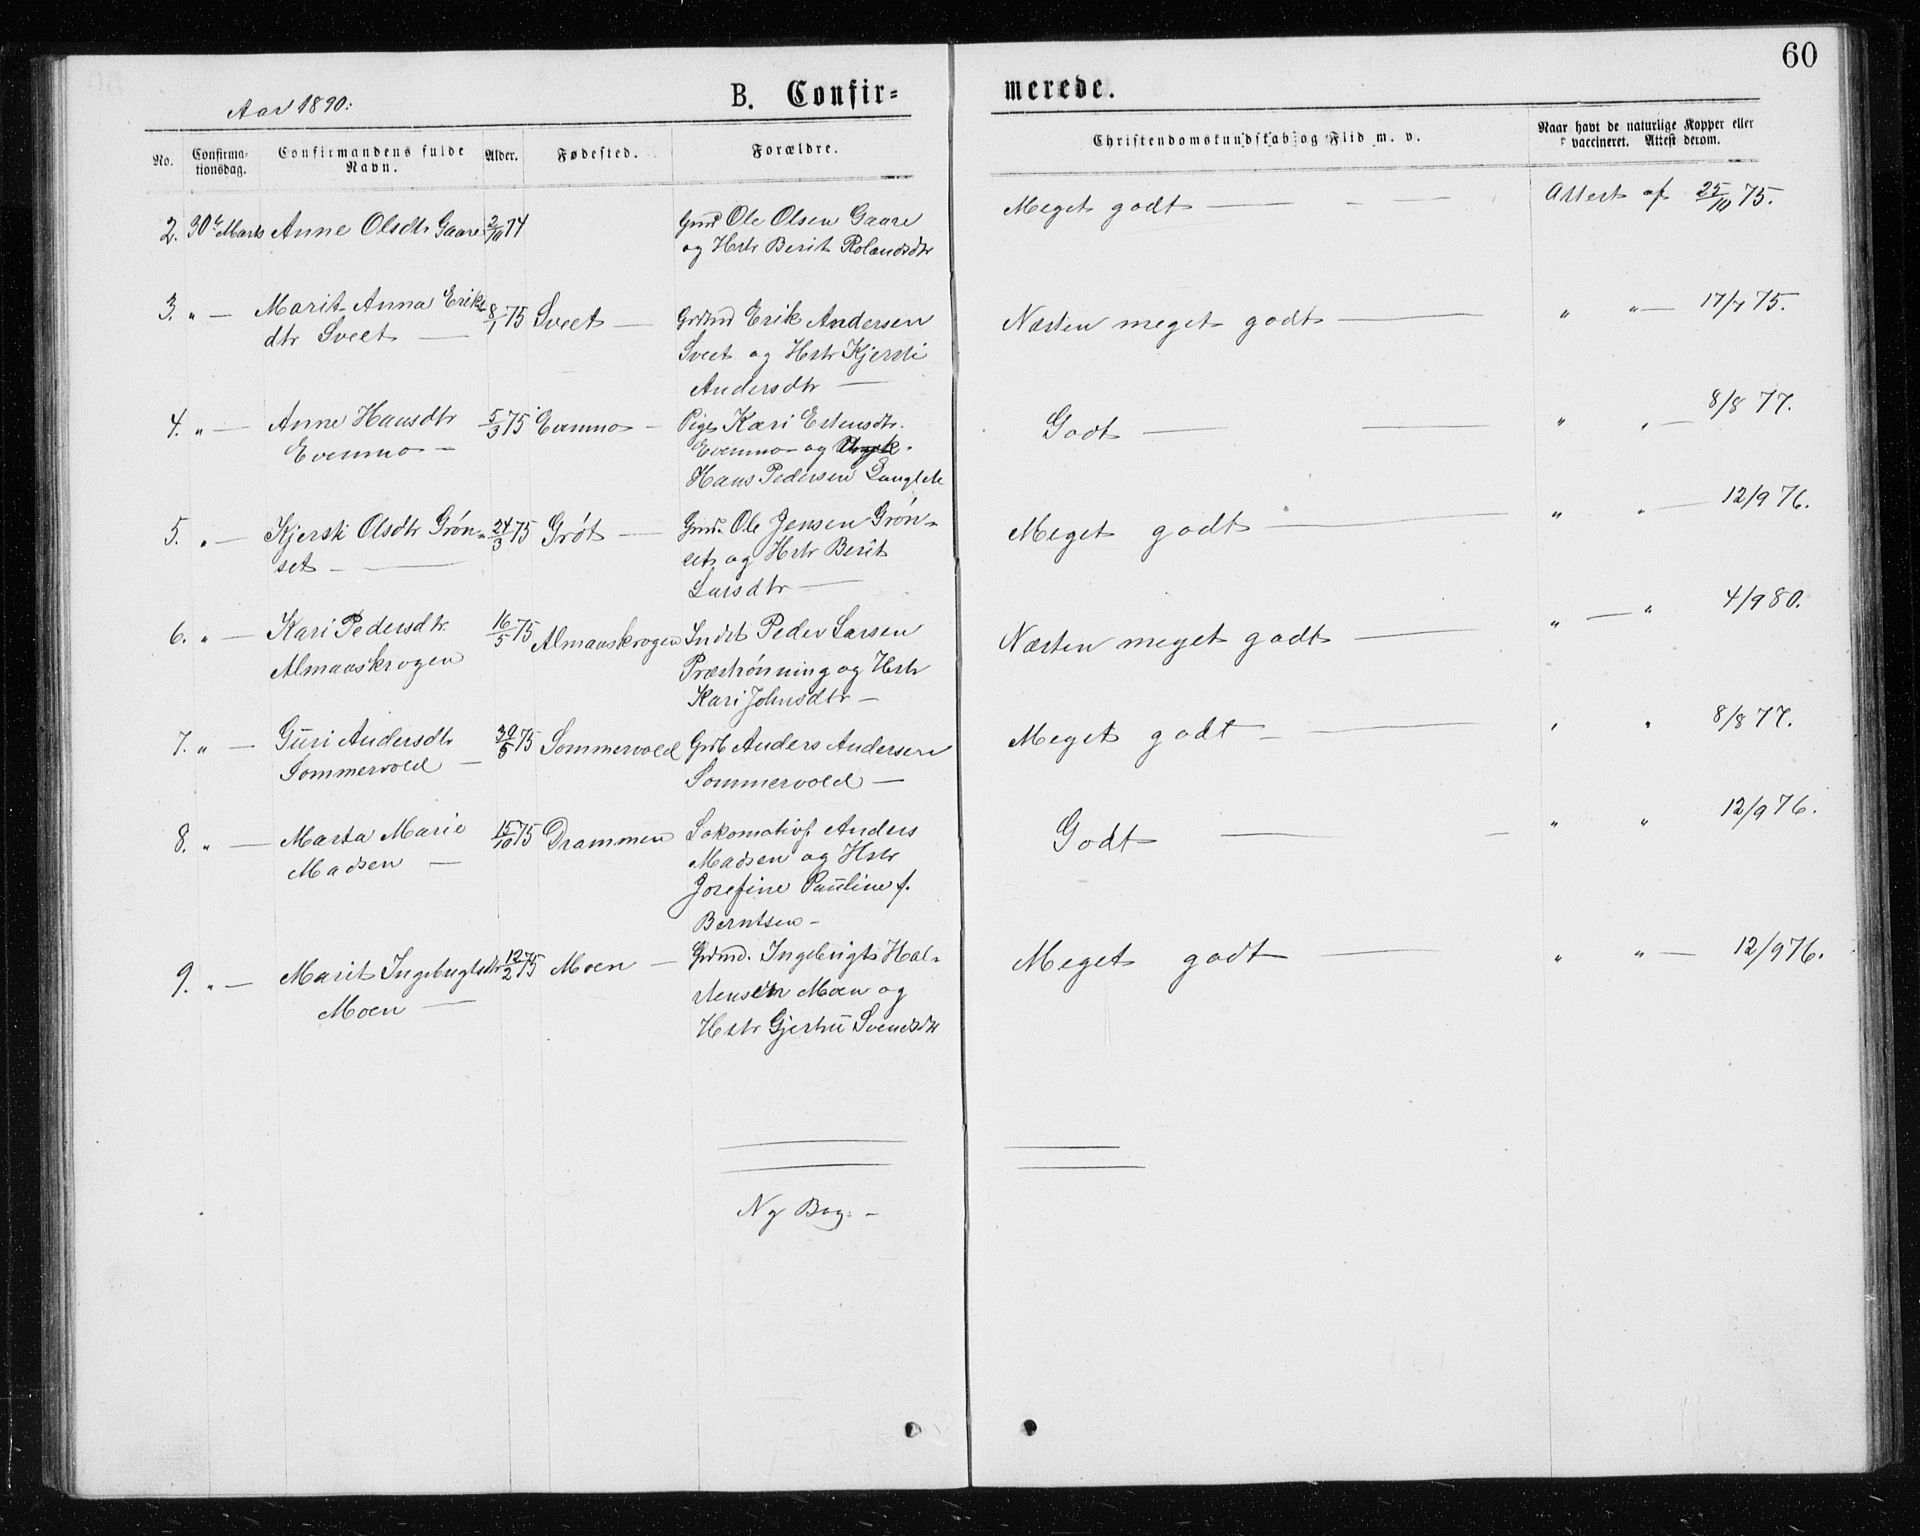 60
B. Confir=
merede.
Aar 1890:
No.
Confirma-
tionsdag.
Confirmandens fulde
Navn.
Alder.
Fødested.
Forældre.
Christendomskundskab og Flid m. v.
Naar havt de naturlige Kopper eller
vaccineret. Attest derom.
2. 30te Marts Anne Olsdtr Gaare 2/11 74
Grmd Ole Olsen Gaare
og Hstr Berit Rolandsdtr
Meget godt — - —
Attest af 25/10 75.
3. " — Marit Anna Eriks
dtr Sveet —
8/1 75 Sveet —
Grdmd Erik Andersen
Sveet og Hstr Kjersti
Andersdtr —
Næsten meget godt —
" " — 17/7 75.
4. " — Anne Hansdtr
Evenmo —
5/3 75 Evenmo —
Pige Kari Estensdtr.
Evenmo og Ungk.
Hans Pedersen Langlete
Godt — —
" " — 8/8 77.
5. " — Kjersti Olsdtr Grøn-
set — —
24/3 75 Grøt —
Grmd. Ole Jensen Grøn-
set og Hstr Berit
Larsdtr —
Meget godt —
" " — 12/9 76.
6. " — Kari Pedersdtr.
Almaaskrogen
16/5 75 Almaaskrogen
Indst Peder Larsen
Præstrønning og Hstr
Kari Johnsdtr —
Næsten meget godt —
" — " 4/9 80.
7. " — Guri Andersdtr
Sommervold —
30/5 75 Sommervold
Grdb Anders Andersen
Sommervold —
Meget godt - —
" " 8/8 77.
8. " — Marta Marie
Madsen —
15/10 75 Drammen
Lokomotivf. Anders
Madsen og Hstr
Josefine Pauline f.
Berntsen -
Godt — -
" " 12/9 76.
9. " — Marit Ingebrigtsdtr
Moen —
12/2 75 Moen —
Grdmd. Ingebrigt Hal-
stensen Moen og
Hstr Gjertru Svendsdtr
Meget godt —
" " — 12/9 76.
Ny Bog. -